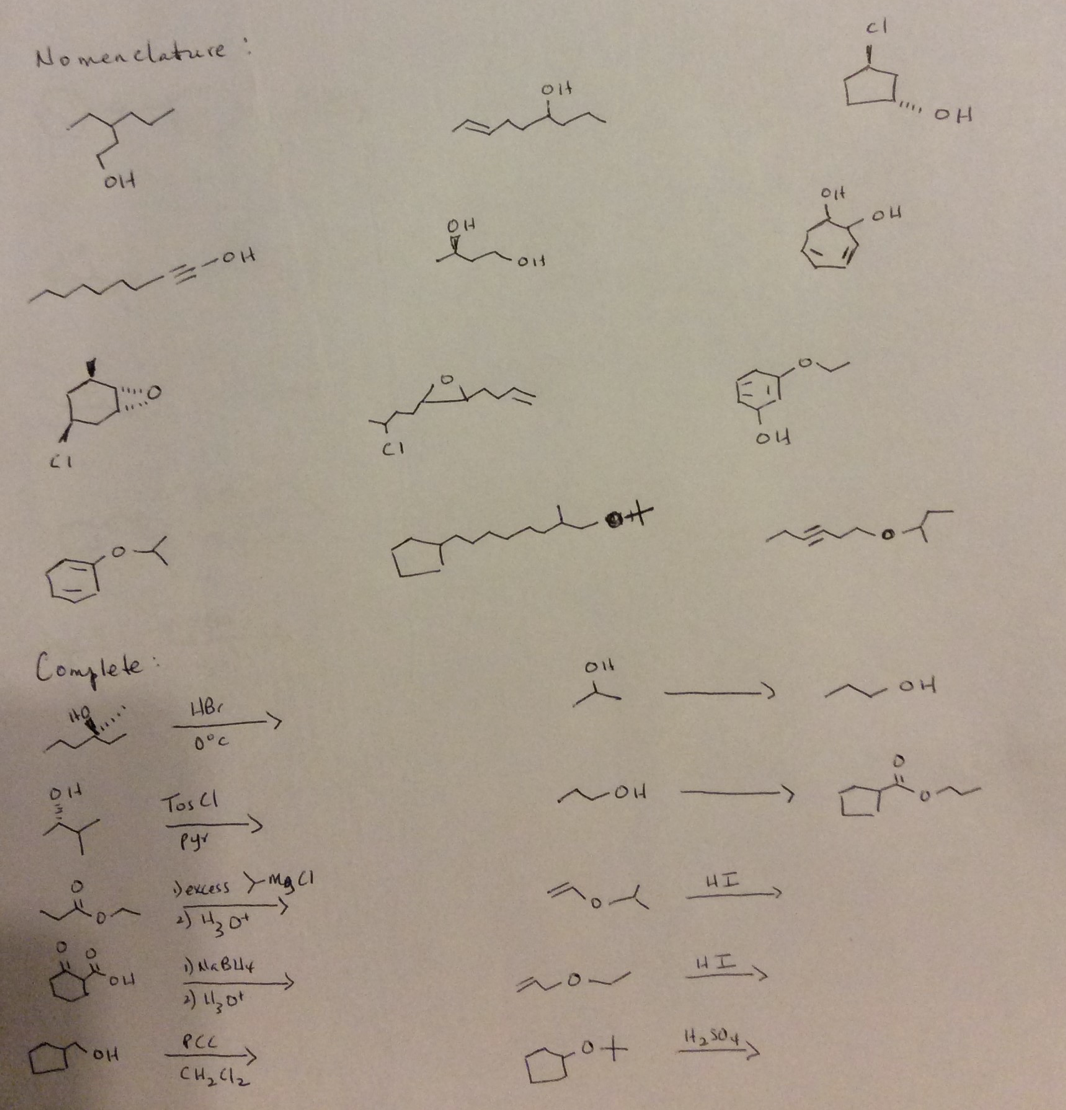 Nomenclature:
Cl
OH
OH
OH
OH
OH
OH
OH
OH
OH
O
O
O
Cl
Cl
OH
O
O
O
Complete:
HO
HBr
0°C
OH
OH
OH
TosCl
Pyr
OH
O
O
O
O
1) excess MgCl
2) H3O+
O
HI
O
O
OH
1) NaBH4
2) H3O+
O
HI
OH
PCC
CH2Cl2
O
H2SO4